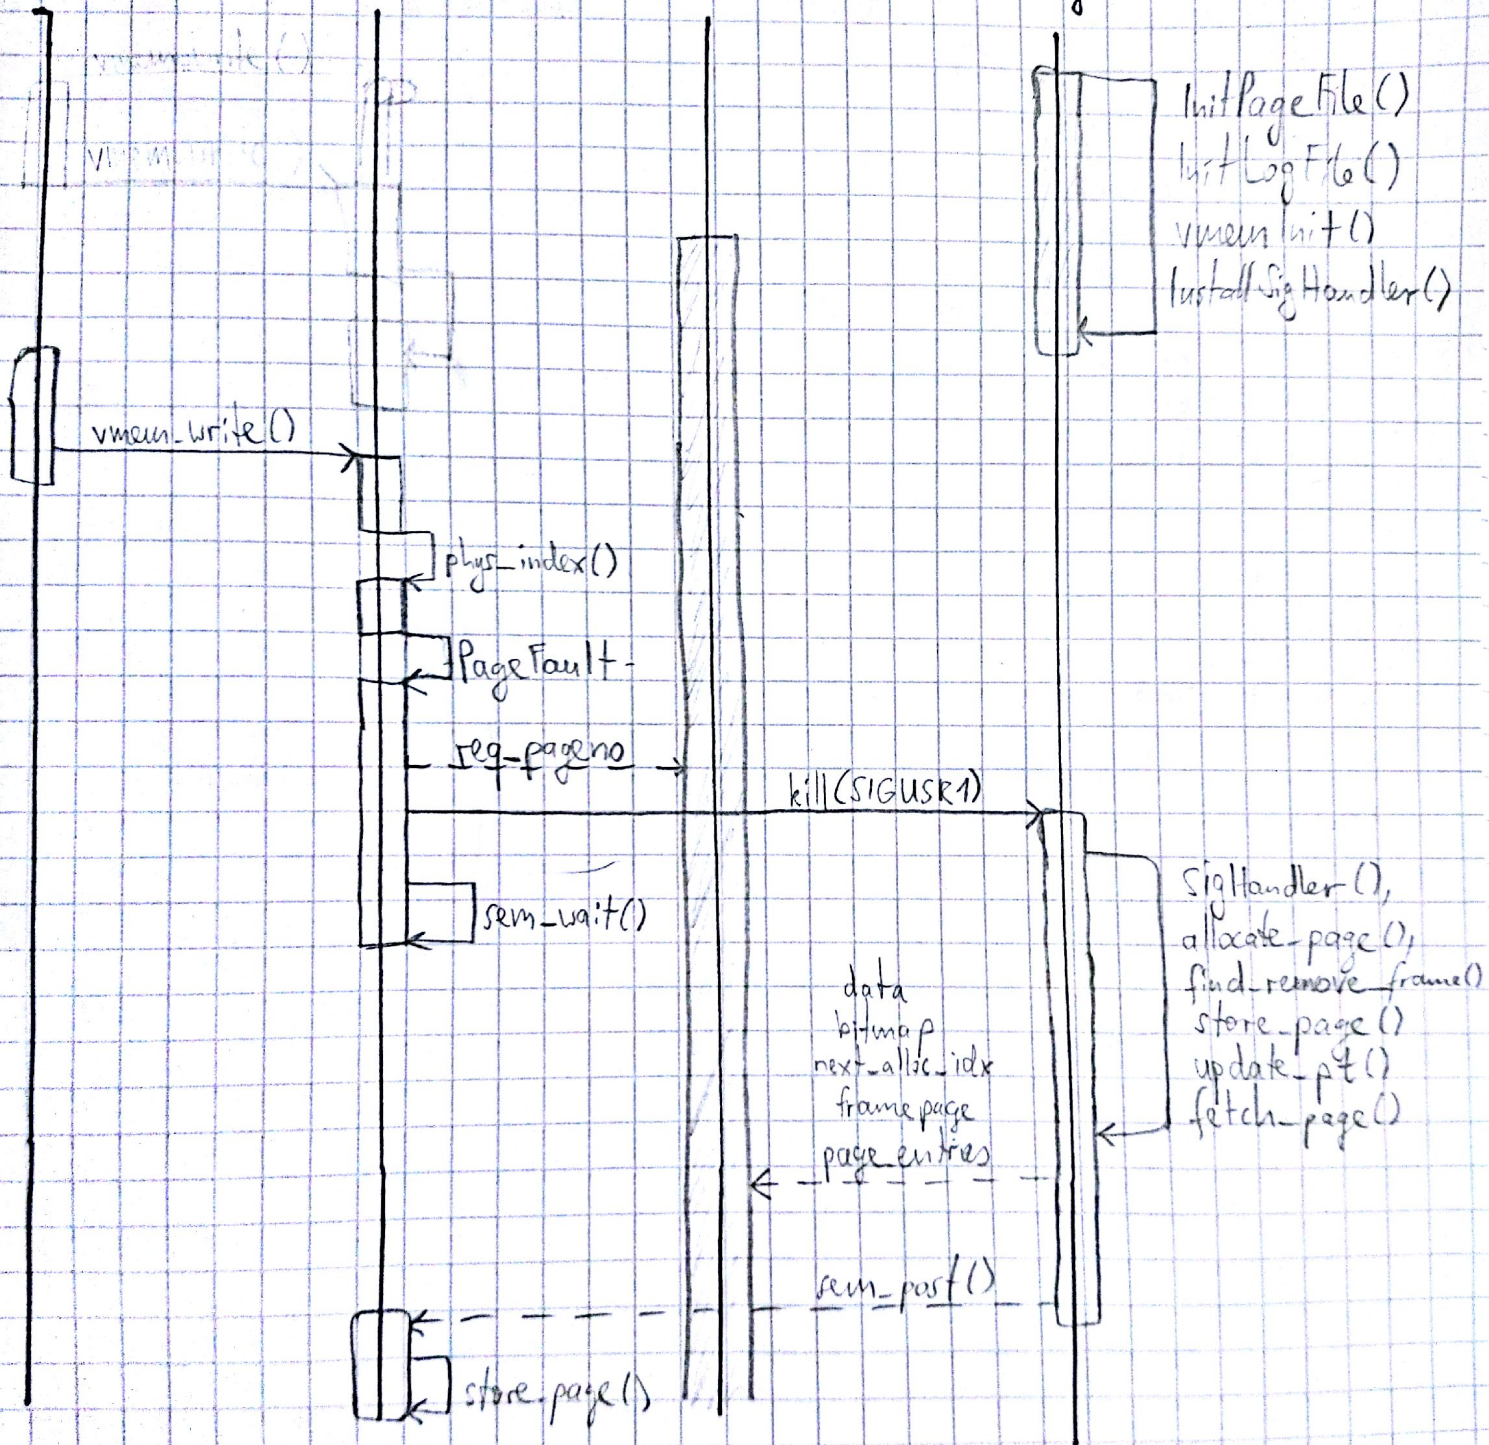 InitPageFile()
InitLogFile()
vmemInit()
InstallSigHandler()
vmem_write()
phys_index()
PageFault
req_pageno
kill(SIGUSR1)
sem_wait()
SigHandler(),
allocate_page(),
find_remove_frame()
store_page()
update_pt()
fetch_page()
data
bitmap
next_alloc_idx
framepage
page_entries
sem_post()
store_page()